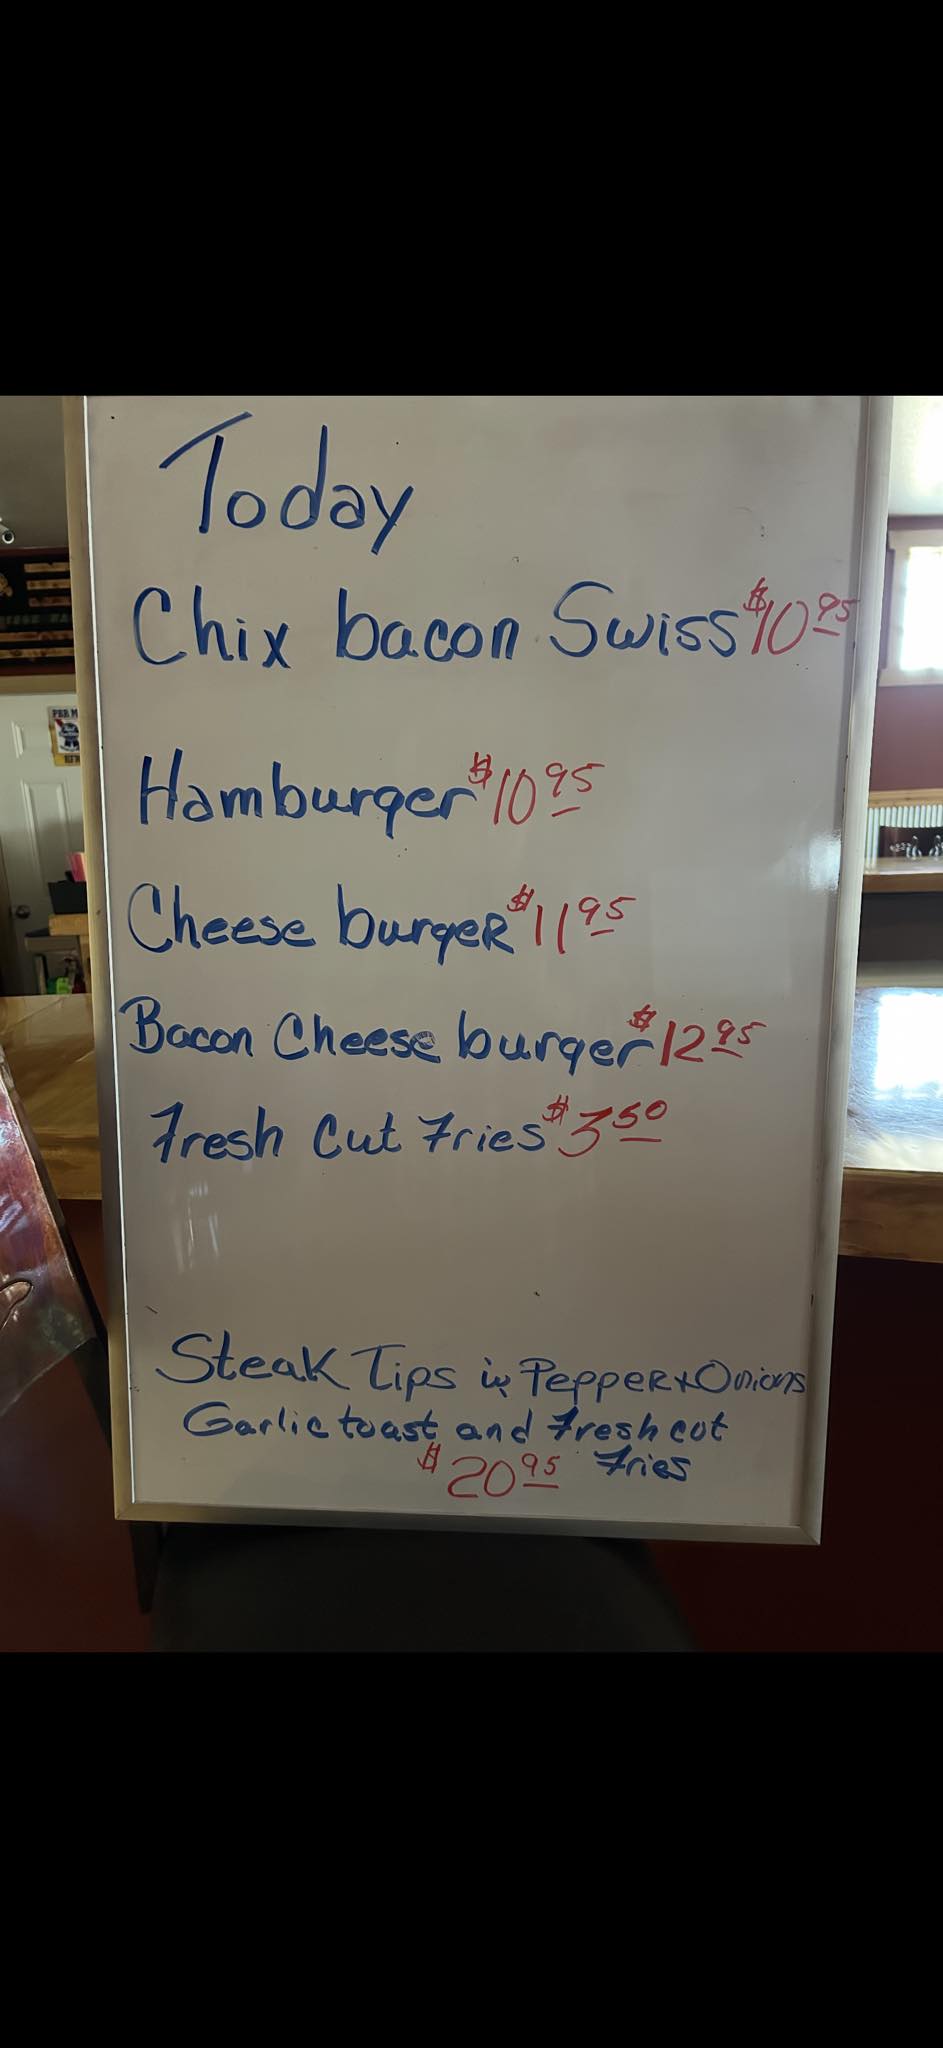 Today
Chix bacon Swiss $10.95
Hamburger $10.95
Cheese burger $11.95
Bacon Cheese burger $12.95
Fresh Cut Fries $3.50
Steak Tips w Pepper + Onions
Garlic toast and Fresh cut
$20.95 Fries